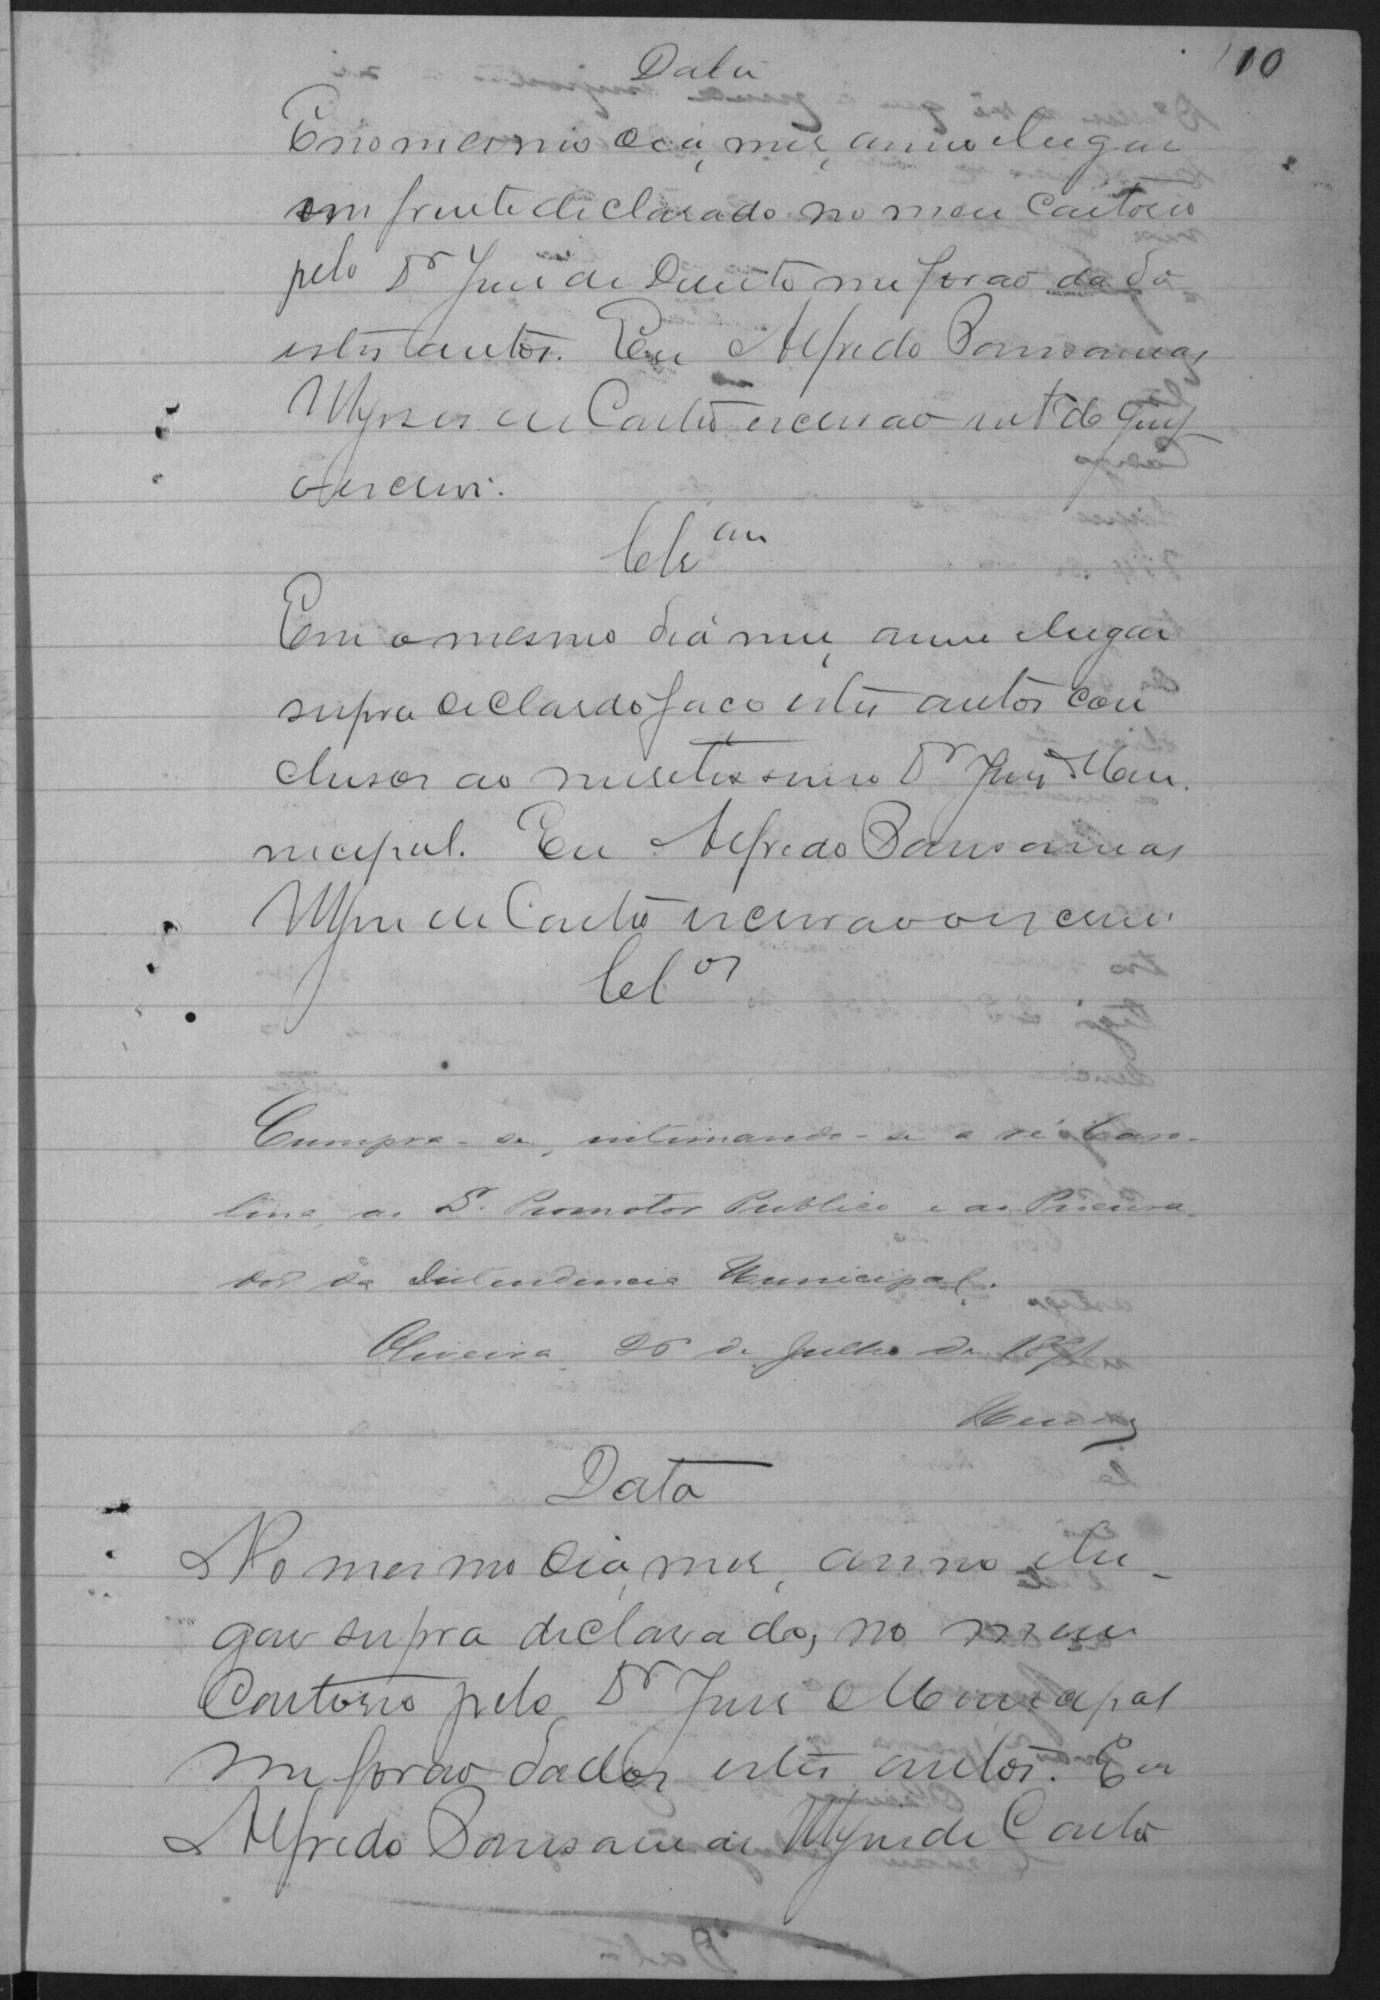 10
Data
E no mesmo dia, mes, anno e lugar
em frente declarado no meu Cartorio
pelo Dr Juis de Direito me forão dado
estes autos. Eu Alfredo
Ulysses de Castro escrivão int.º do Jury
o escrevi.
Cls
Em o mesmo dia mes, anno e lugar
supra declardo faço estes autos con
clusos ao meretissimo Dr Juis Mu
necipal. Eu Alfredo
de Castro escrivão o escrevi.
Cl os
Cumpra-se, intimando-se a ré Caro-
lina, ao D. Promotor Publico e ao Procura-
dor da Intendencia Municipal.
Oliveira 26 de Julho de 1891
Data
No mesmo dia, mes, anno e lu-
gar supra declarado, no meu
Cartorio pelo Dr Juis Municipal
me forão dados estes autos. Eu
Alfredo de Castro